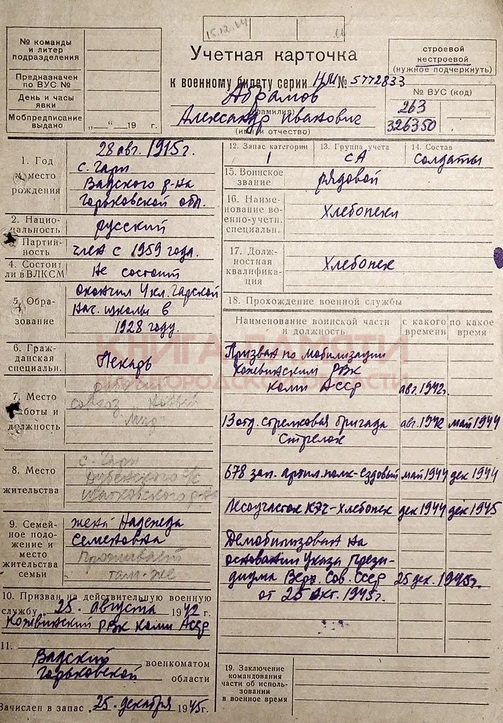 15.12.64
№ команды
и литер
подразделения
Предназначен
по ВУС №
День и часы
явки
Мобпредписание
выдано „ “ 19
Учетная карточка
к военному билету серии НМ № 5772833
Абрамов
Александр Иванович
(имя и отчество)
строевой
нестроевой
(нужное подчеркнуть)
№ ВУС (код)
263
326350
1. Год
и место
рождения
28 авг. 1915г.
с. Гари
Вадского р-на
Горьковской обл.
2. Нацио-
нальность
русский
3. Партий-
ность
член с 1959 года.
4. Состоит
ли в ВЛКСМ
Не состоит
5. Обра-
зование
окончил 4 кл. Гарской
нач. школы в
1928 году.
6. Граж-
данская
специальн.
Пекарь
7. Место
работы и
должность
совхоз Новый
Мир"
8. Место
жительства
с. Гари
9. Семейное
положение и
место
жительства
семьи
жена Надежда
Семеновна
Проживает
там-же
10. Призван на действительную военную
службу „ 25 “ августа 1942 г.
Кожвинский РВК Коми АССР
11.
Вадский военкоматом
Горьковской области
Зачислен в запас „ 25 “ декабря 1945г.
12. Запас категории
1
13. Группа учета
СА
14. Состав
солдаты
15. Воинское
звание
рядовой
16. Наиме-
нование во-
енно-учетн.
специальн.
Хлебопеки
17. Долж-
ностная
квалифика-
ция
Хлебопек
18. Прохождение военной службы
Наименование воинской части
и должность
с какого
времени
по какое
время
Призван по мобилизации
Кожвинским РВК
Коми АССР авг. 1942.
13 отд. стрелковая бригада авг. 1942 май 1944
Стрелок
678 зап. артил. полк-ездовый май 1944 дек 1944
Лесоучасток КЭЧ-хлебопек дек 1944 дек 1945
Демобилизован на
основании Указа Прези-
диума Верх. Сов. СССР 25 дек. 1945г.
от 25 окт. 1945г.
19. Заключение
командования
части об исполь-
зовании
в военное время
КНИГА ПАМЯТИ
НИЖЕГОРОДСКОЙ ОБЛАСТИ